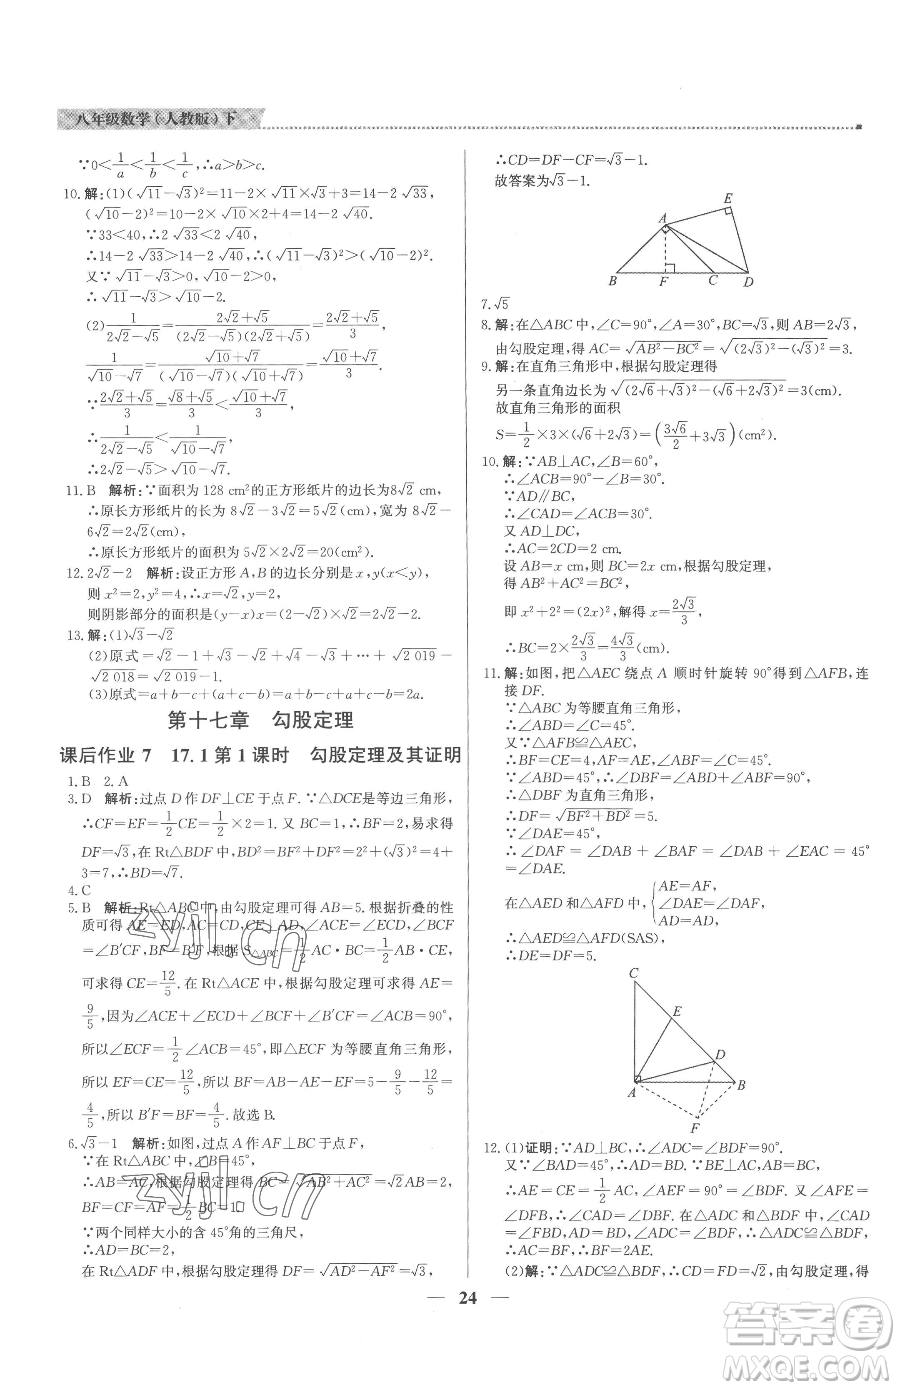 八年级数学(人教版)下
∵0<1/a<1/b<1/c,∴a>b>c.
10.解:(1)(√11-√3)²=11-2×√11×√3+3=14-2√33,
(√10-2)²=10-2×√10×2+4=14-2√40.
∵33<40,∴2√33<2√40,
∴14-2√33>14-2√40,∴(√11-√3)²>(√10-2)².
又∵√11-√3>0,√10-2>0,
∴√11-√3>√10-2.
(2)1/(2√2-√5)=(2√2+√5)/((2√2-√5)(2√2+√5))=(2√2+√5)/3,
1/(√10-√7)=(√10+√7)/((√10-√7)(√10+√7))=(√10+√7)/3.
∵(2√2+√5)/3=(√8+√5)/3<(√10+√7)/3,
∴1/(2√2-√5)<1/(√10-√7),
∴2√2-√5>√10-√7.
11.B 解析:∵面积为128 cm²的正方形纸片的边长为8√2 cm,
∴原长方形纸片的长为8√2-3√2=5√2(cm),宽为8√2-
6√2=2√2(cm),
∴原长方形纸片的面积为5√2×2√2=20(cm²).
12.2√2-2 解析:设正方形A,B的边长分别是x,y(x<y),
则x²=2,y²=4,所以x=√2,y=2,
则阴影部分的面积是(y-x)x=(2-√2)×√2=2√2-2.
13.解:(1)√3-√2
(2)原式=√2-1+√3-√2+√4-√3+…+√2 019-
√2 018=√2 019-1.
(3)原式=a+b+c+(a+b+c)=2a+2b+2c.
第十七章 勾股定理
课后作业7 17.1第1课时 勾股定理及其证明
1.B 2.A
3.D 解析:过点D作DF⊥CE于点F.∵△DCE是等边三角形,
∴CF=EF=1/2CE=1/2×2=1.又BC=1,∴BF=2,易求得
DF=√3,在Rt△BDF中,BD²=BF²+DF²=2²+(√3)²=4+
3=7,∴BD=√7.
4.C
5.B 解析:Rt△ABC中,由勾股定理可得AB=5.根据折叠的性
质可得AE=ED,AC=CD,∠ACE=∠ECD,∠BCF
=∠B′CF,BF=B′F,根据S△ABC=1/2AC·BC=1/2AB·CE,
可求得CE=12/5.在Rt△ACE中,由勾股定理可求得AE=
9/5,因为∠ACE+∠ECD+∠BCF+∠B′CF=∠ACB=90°,
所以∠ECF=1/2∠ACB=45°,即△ECF为等腰直角三角形,
所以EF=CE=12/5,所以BF=AB-AE-EF=5-9/5-12/5=
4/5,所以B′F=BF=4/5.故选B.
6.√3-1 解析:如图,过点A作AF⊥BC于点F,
∵在Rt△ABC中,∠B=45°,
∴AB=AC,根据勾股定理得BC=√(AB²+AC²)=√2AB=2,
BF=CF=AF=1/2BC=1.
∵两个同样大小的含45°角的三角尺,
∴AD=BC=2,
在Rt△ADF中,根据勾股定理得DF=√(AD²-AF²)=√3,
∴CD=DF-CF=√3-1.
故答案为√3-1.
A
E
B
F
C
D
7.√5
8.解:在△ABC中,∠C=90°,∠A=30°,BC=√3,则AB=2√3,
由勾股定理,得AC=√(AB²-BC²)=√((2√3)²-(√3)²)=3.
9.解:在直角三角形中,根据勾股定理得
另一条直角边长为√((2√6+√3)²-(√6+2√3)²)=3(cm).
故直角三角形的面积
S=1/2×3×(√6+2√3)=(3√6/2+3√3)(cm²).
10.解:∵AB⊥AC,∠B=60°,
∴∠ACB=90°-∠B=30°.
∵AD∥BC,
∴∠CAD=∠ACB=30°.
又AD⊥DC,
∴AC=2CD=2 cm.
设AB=x cm,则BC=2x cm,根据勾股定理,
得AB²+AC²=BC²,
即x²+2²=(2x)²,解得x=2√3/3,
∴BC=2√3/3×2=4√3/3(cm).
11.解:如图,把△AEC绕点A顺时针旋转90°得到△AFB,连
接DF.
∵△ABC为等腰直角三角形,
∴△AFB≌△AEC.
∵∠ABD=45°,∠ABF=45°,
∴△DBF为直角三角形,
∴DF=√(BF²+BD²)=5.
∵∠DAE=45°,
∴∠DAF=∠DAB+∠BAF=∠DAB+∠CAE=45°
=∠DAE.
在△AED和△AFD中,{AE=AF,
∠DAF=∠DAE,
AD=AD,
∴△AED≌△AFD(SAS),
∴DE=DF=5.
C
E
D
A
B
F
12.(1)证明:∵AD⊥BC,∴∠ADC=∠BDF=90°.
又∵∠BAD=45°,∴AD=BD.∵BE⊥AC,AB=BC,
∴AE=CE=1/2AC,∠AEF=90°=∠BDF.又∠AFE=
∠DFB,∴∠CAD=∠FBD.在△ADC和△BDF中,∠CAD
=∠FBD,AD=BD,∠ADC=∠BDF,
∴△ADC≌△BDF,∴AC=BF,∴BF=2AE.
(2)解:∵△ADC≌△BDF,∴CD=FD=√2,由勾股定理,得
24
zyjl.cn
zyjl.cn
答案圈
MXQE.COM